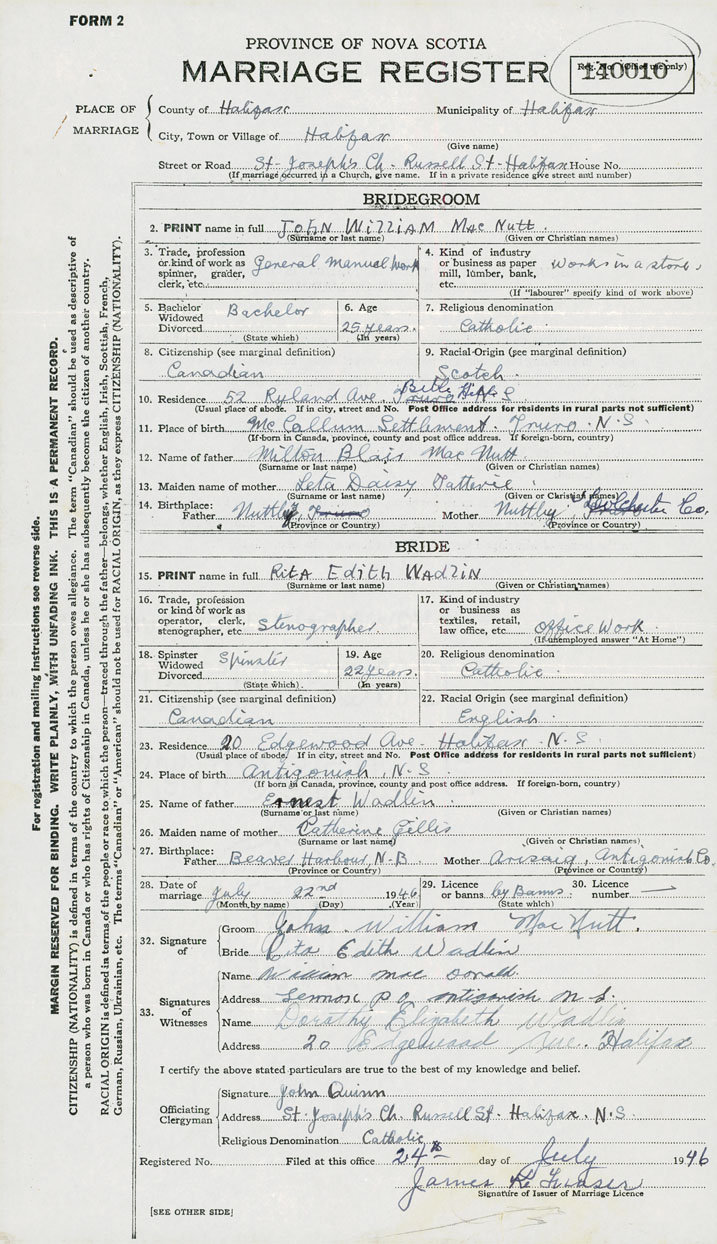 FORM 2
PROVINCE OF NOVA SCOTIA
MARRIAGE REGISTER
Reg. No. (Office use only)
140010
PLACE OF MARRIAGE
County of Halifax Municipality of Halifax
City, Town or Village of Halifax
(Give name)
Street or Road St-Joseph's Ch. Russell St-Halifax House No.
(If marriage occurred in a Church, give name. If in a private residence give street and number)
BRIDEGROOM
2. PRINT name in full John William Mac Nutt.
(Surname or last name) (Given or Christian names)
3. Trade, profession or kind of work as spinner, grader, clerk, etc. General Manual Work
4. Kind of industry or business as paper mill, lumber, bank, etc. Works in a store.
(If "labourer" specify kind of work above)
5. Bachelor Widowed Divorced Bachelor
(State which)
6. Age 25 years.
(In years)
7. Religious denomination
Catholic
8. Citizenship (see marginal definition)
Canadian
9. Racial Origin (see marginal definition)
Scotch.
10. Residence 52 Ryland Ave. Bible Hill N S
(Usual place of abode. If in city, street and No. Post Office address for residents in rural parts not sufficient)
11. Place of birth McCallum Settlement. Truro. N.S
(If born in Canada, province, county and post office address. If foreign-born, country)
12. Name of father Milton Blair Mac Nutt.
(Surname or last name) (Given or Christian names)
13. Maiden name of mother Leta Daisy
(Surname or last name) (Given or Christian names)
14. Birthplace:
Father Nuttby, Truro Mother Nuttby, Colchester Co.
(Province or Country) (Province or Country)
BRIDE
15. PRINT name in full Rita Edith Wadlin
(Surname or last name) (Given or Christian names)
16. Trade, profession or kind of work as operator, clerk, stenographer, etc. Stenographer.
17. Kind of industry or business as textiles, retail, law office, etc. Office Work.
(If unemployed answer "At Home")
18. Spinster Widowed Divorced Spinster
(State which)
19. Age 22 years.
(In years)
20. Religious denomination
Catholic
21. Citizenship (see marginal definition)
Canadian
22. Racial Origin (see marginal definition)
English
23. Residence 20 Edgewood Ave. Halifax. N.S.
(Usual place of abode. If in city, street and No. Post Office address for residents in rural parts not sufficient)
24. Place of birth Antigonish, N.S
(If born in Canada, province, county and post office address. If foreign-born, country)
25. Name of father Ernest Wadlin
(Surname or last name) (Given or Christian names)
26. Maiden name of mother Catherine Gillis
(Surname or last name) (Given or Christian names)
27. Birthplace:
Father Beaver Harbour, N.B Mother Arisaig, Antigonish Co.
(Province or Country) (Province or Country)
28. Date of marriage July 22nd 1946
(Month by name) (Day) (Year)
29. Licence or banns by Banns
(State which)
30. Licence number —
32. Signature of
Groom John. William Mac Nutt.
Bride Rita Edith Wadlin
33. Signatures of Witnesses
Name William Mac Donald.
Address Lennox P O Antigonish N S.
Name Dorothy Elizabeth Wadlin
Address 20 Edgewood Ave. Halifax
I certify the above stated particulars are true to the best of my knowledge and belief.
Officiating Clergyman
Signature John Quinn
Address St-Joseph's Ch. Russell St. Halifax. N.S
Religious Denomination Catholic
Registered No. Filed at this office 24th day of July 1946
James Fraser
Signature of Issuer of Marriage Licence
[SEE OTHER SIDE]
For registration and mailing instructions see reverse side.
MARGIN RESERVED FOR BINDING. WRITE PLAINLY, WITH UNFADING INK. THIS IS A PERMANENT RECORD.
CITIZENSHIP (NATIONALITY) is defined in terms of the country to which the person owes allegiance. The term "Canadian" should be used as descriptive of
a person who was born in Canada or who has rights of Citizenship in Canada, unless he or she has subsequently become the citizen of another country.
RACIAL ORIGIN is defined in terms of the people or race to which the person—traced through the father—belongs, whether English, Irish, Scottish, French,
German, Russian, Ukrainian, etc. The terms "Canadian" or "American" should not be used for RACIAL ORIGIN, as they express CITIZENSHIP (NATIONALITY).